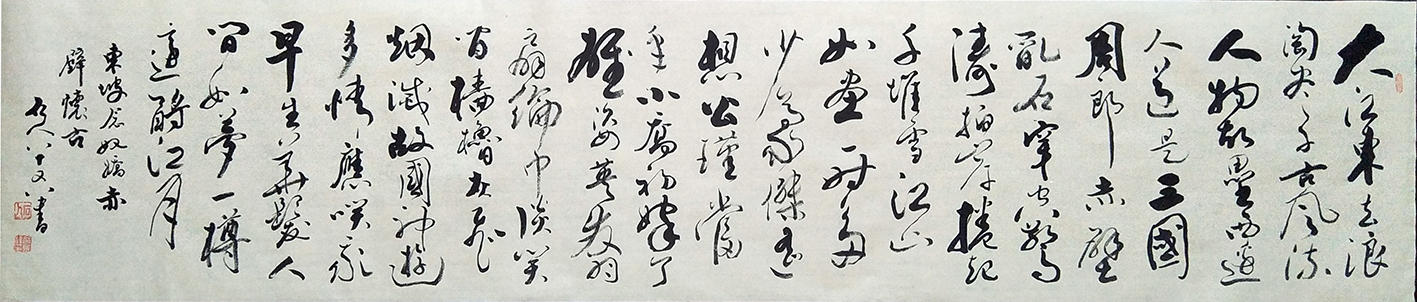 大江東去浪
淘尽千古風流
人物故壘西邊
人道是三國
周郎赤壁
亂石穿空驚
濤拍岸捲起
千堆雪江山
如畫一时多
少豪傑遙
想公瑾當
年小喬初嫁了
雄姿英发羽
扇綸巾談笑
間檣櫓灰飛
烟滅故國神遊
多情應笑我
早生華髮人
間如夢一樽
還酹江月
東坡念奴嬌赤
壁懷古
八十又八書